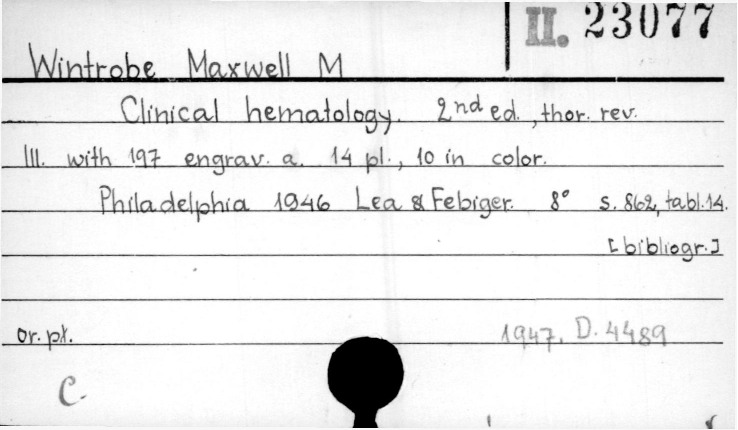 II. 23077
Wintrobe Maxwell M
Clinical hematology. 2nd ed., thor. rev.
Ill. with 197 engrav. a. 14 pl., 10 in color.
Philadelphia 1946 Lea & Febiger. 8° s. 862, tabl. 14.
[bibliogr.]
or. pł. 1947. D. 4489
C.